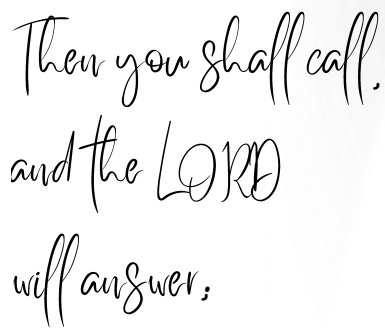 Then you shall call,
and the LORD
will answer;